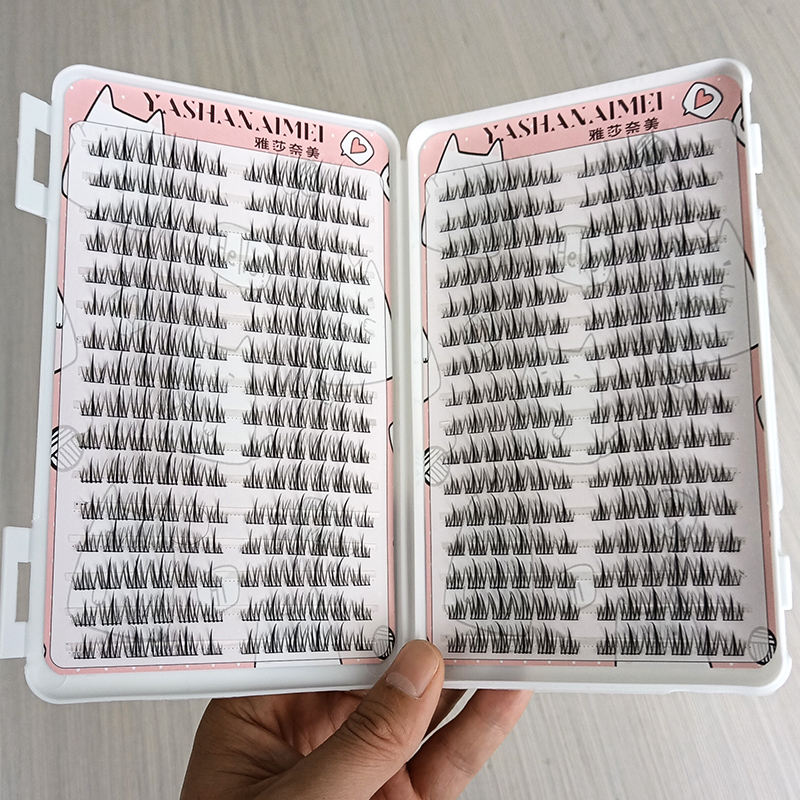 YASHANAIMEI
雅莎奈美
YASHANAIMEI
雅莎奈美